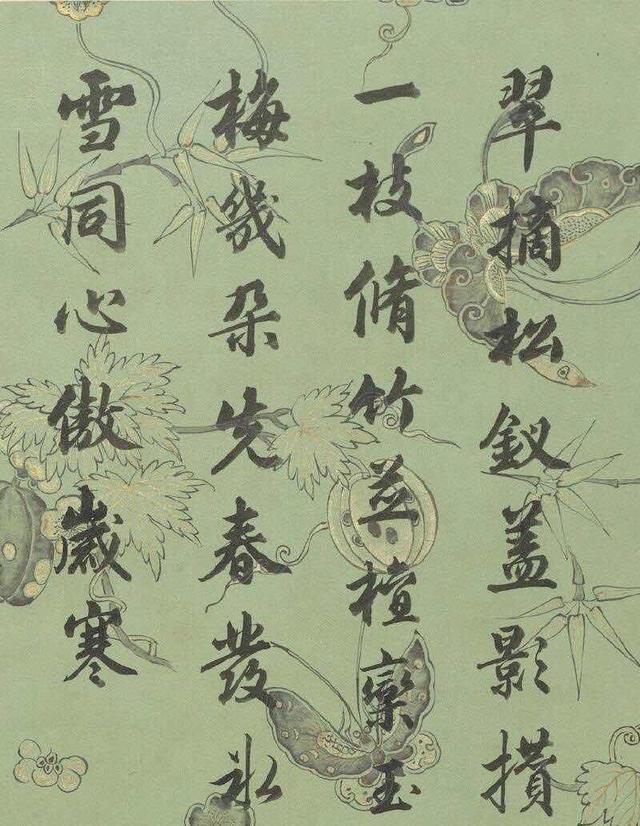 翠摘松釵蓋影攢
一枝脩竹並檀欒玉
梅幾朵先春發氷
雪同心傲歲寒